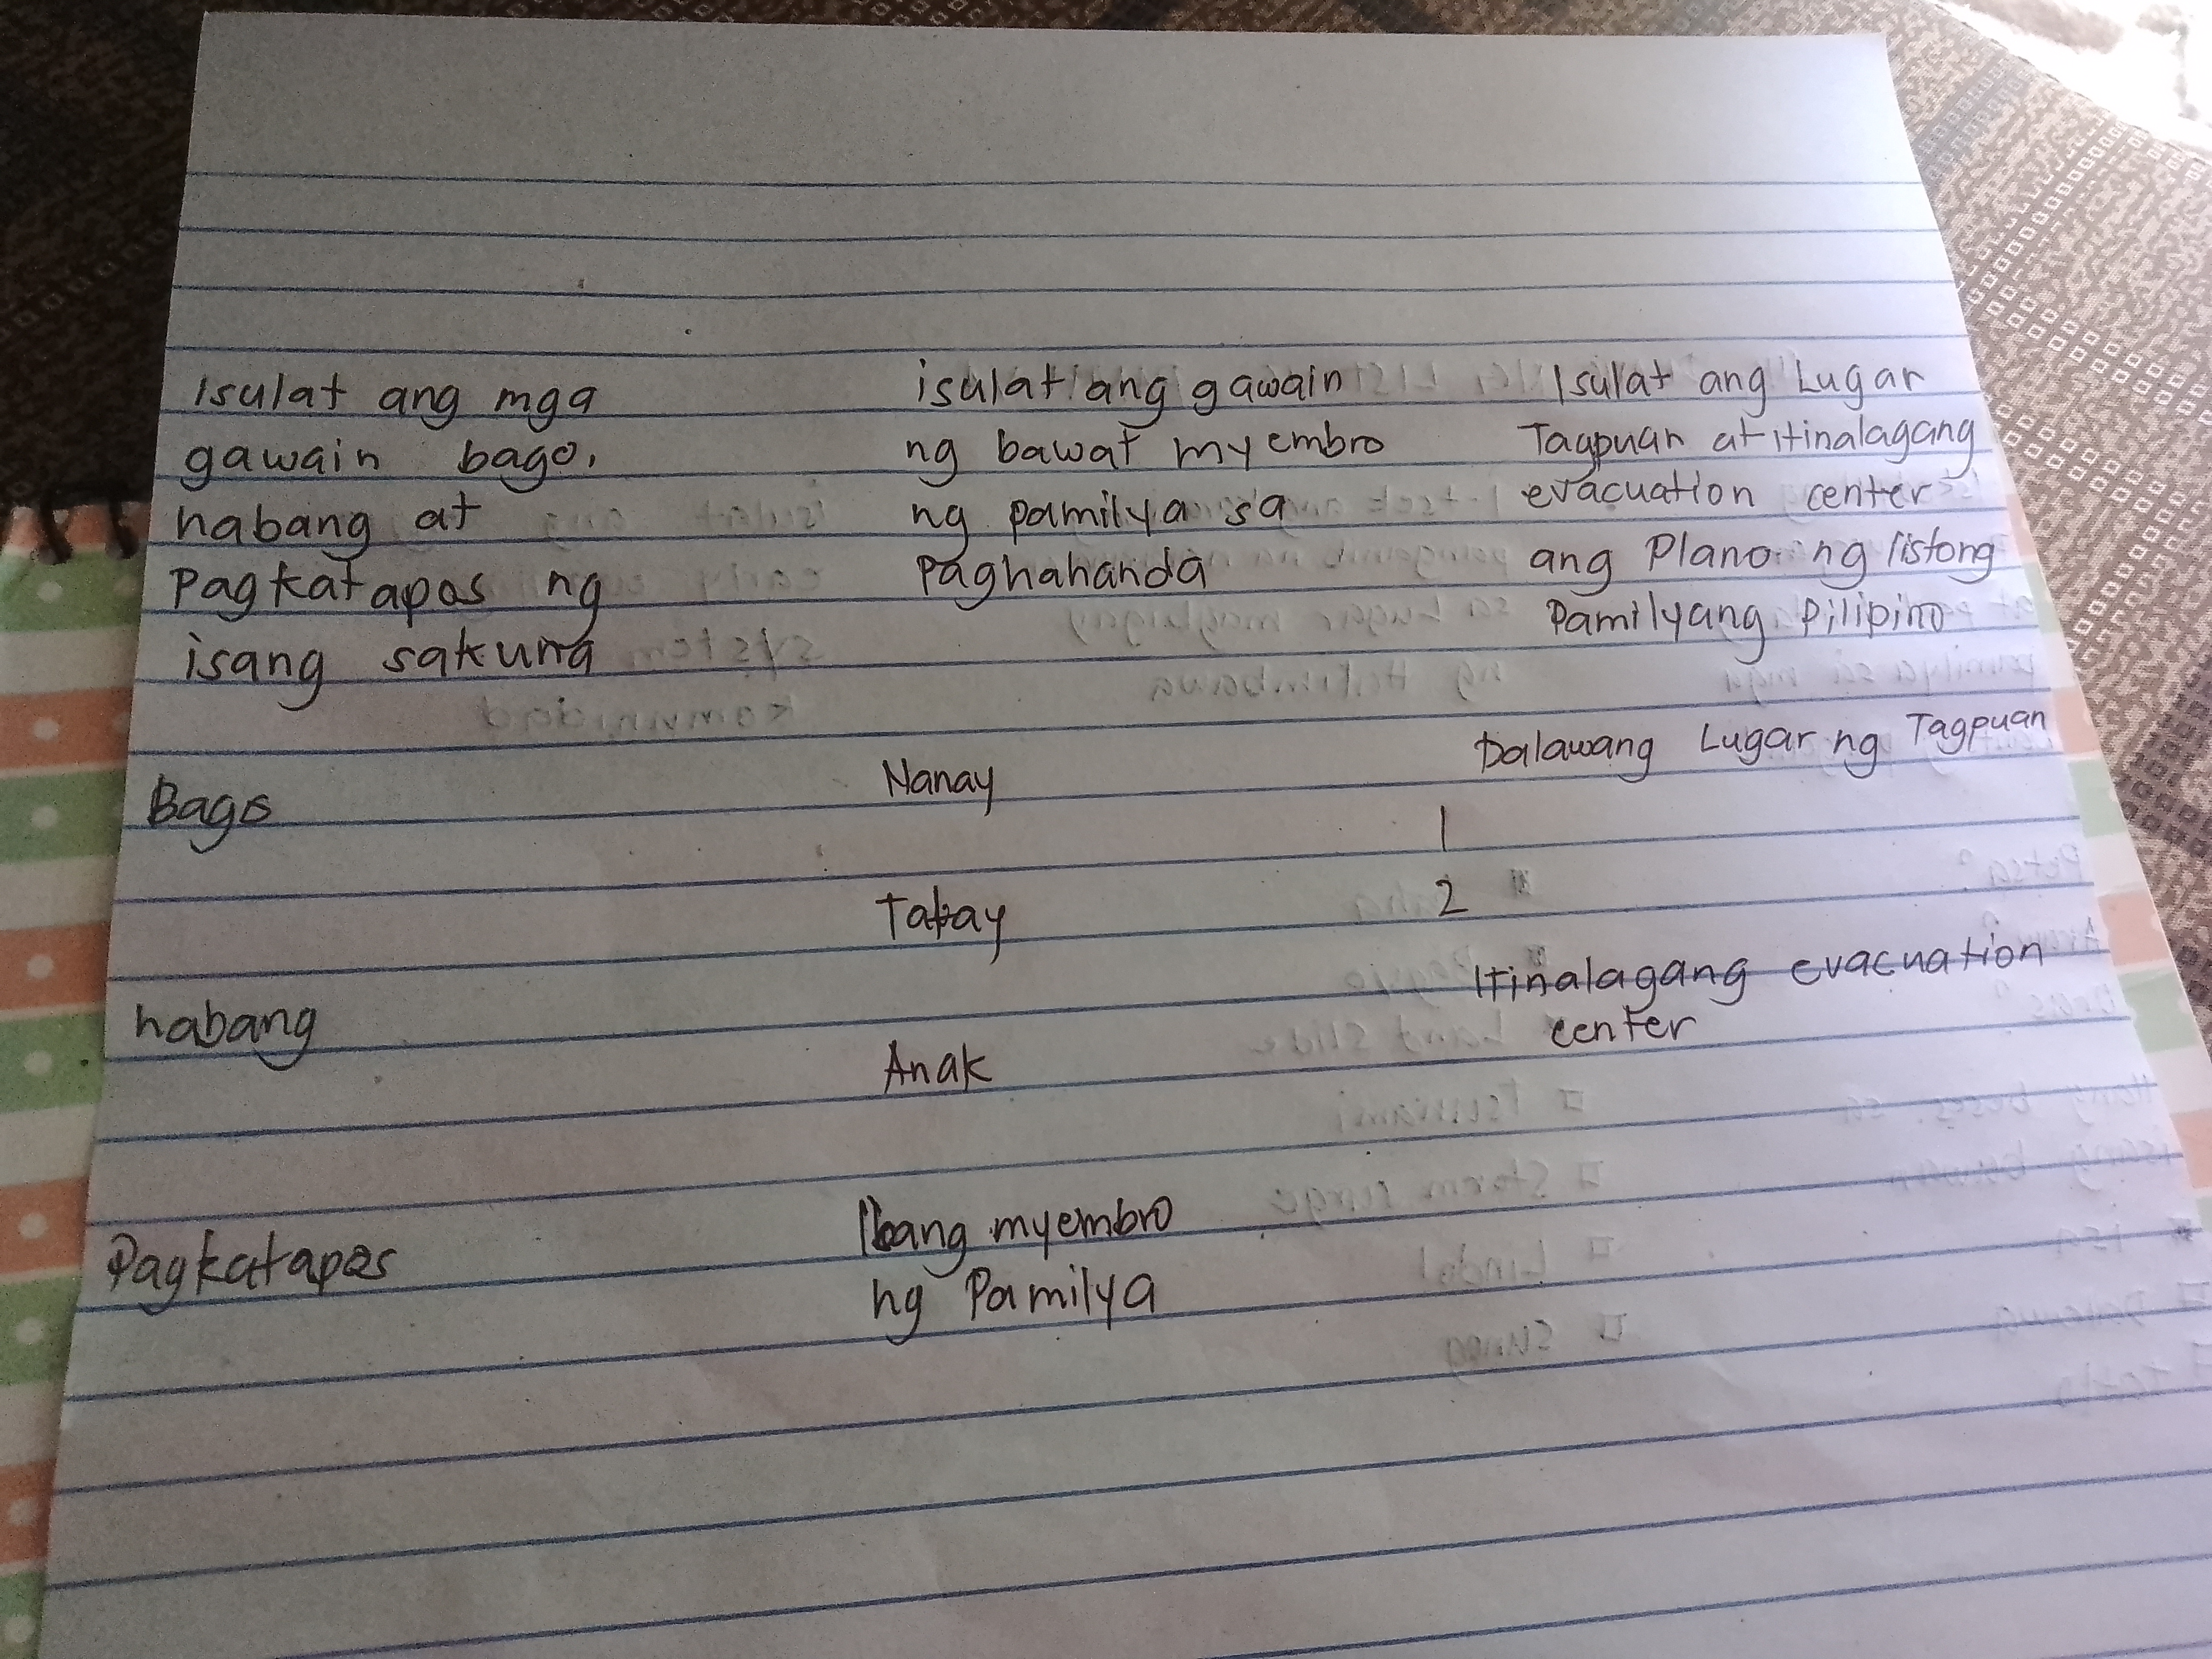 Isulat ang mga
gawain bago,
habang at
Pagkatapos ng
isang sakuna
Bago
habang
Pagkatapos
isulat ang gawain
ng bawat myembro
ng pamilya sa
Paghahanda
Nanay
Tatay
Anak
Ibang myembro
ng Pamilya
Isulat ang Lugar
Tagpuan at itinalagang
evacuation center
ang Plano ng listong
Pamilyang Pilipino
Dalawang Lugar ng Tagpuan
1
2
Itinalagang evacuation
center